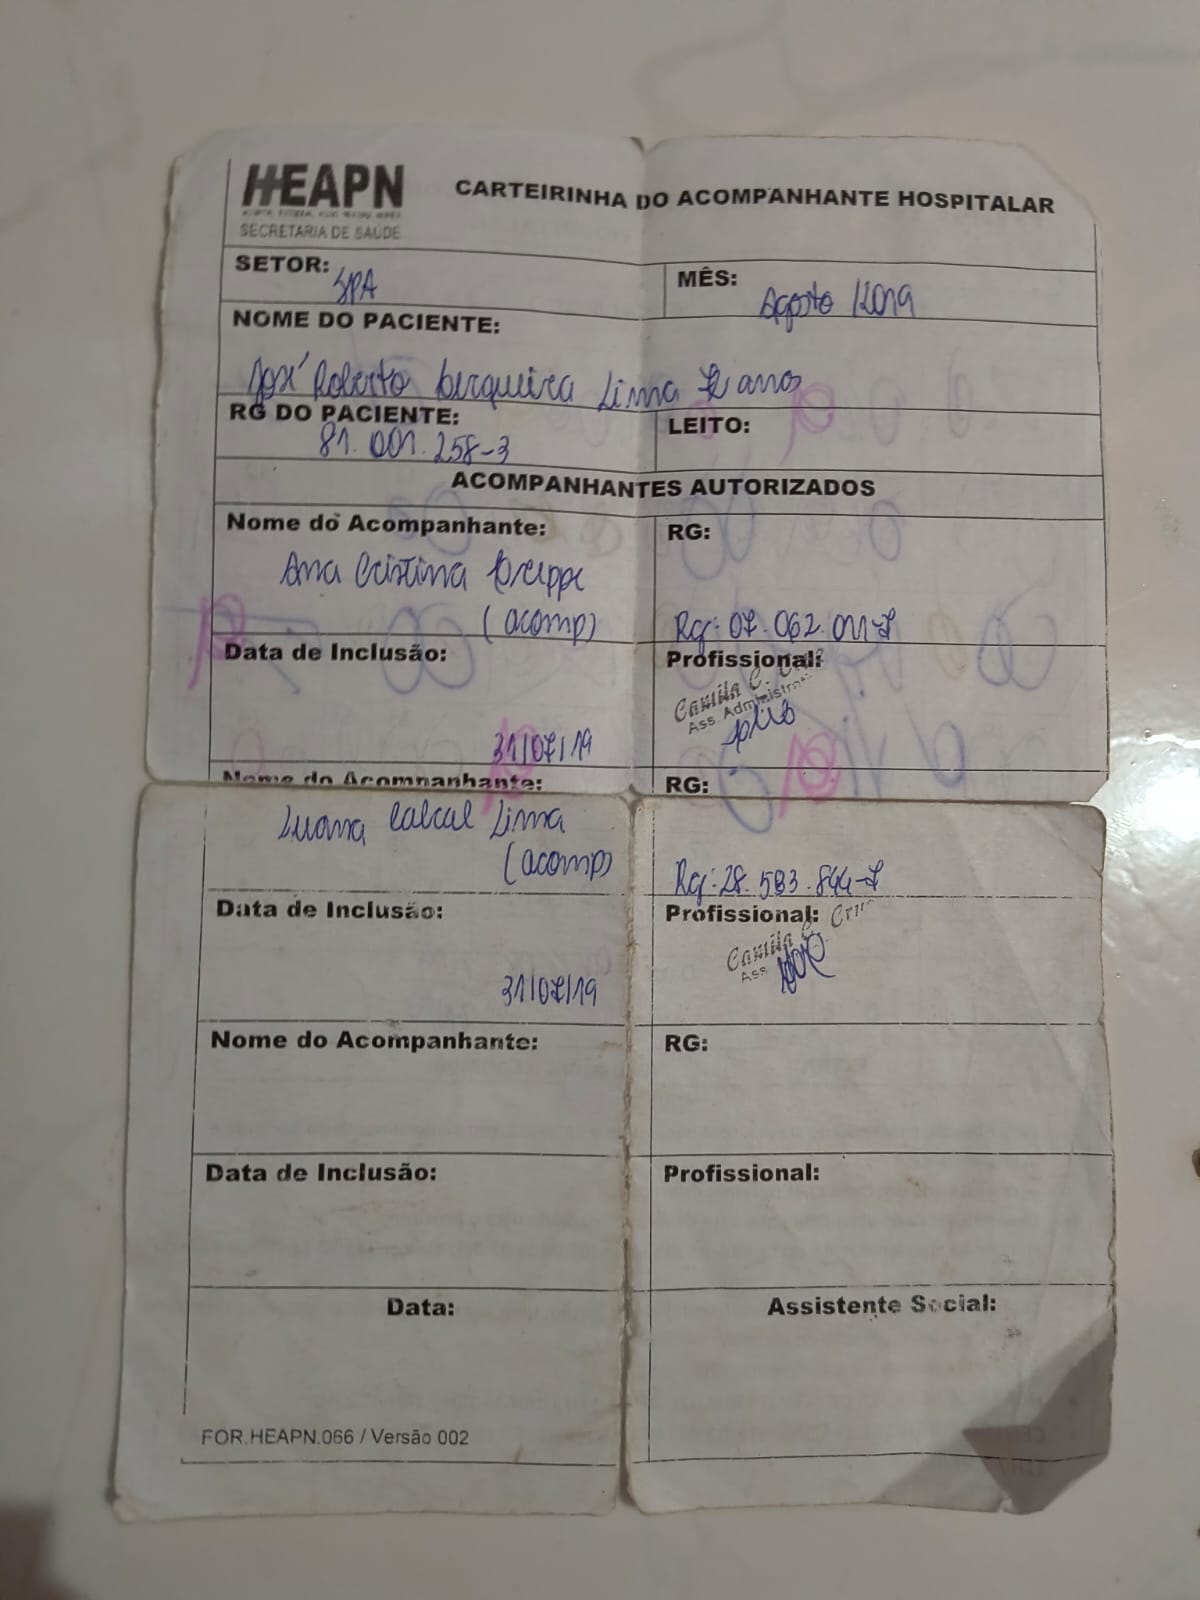 HEAPN
SECRETARIA DE SAÚDE
CARTEIRINHA DO ACOMPANHANTE HOSPITALAR
SETOR: SPA
MÊS: Agosto/2019
NOME DO PACIENTE:
José Roberto Cerqueira Lima anos
RG DO PACIENTE:
81.001.258-3
LEITO:
ACOMPANHANTES AUTORIZADOS
Nome do Acompanhante:
Ana Cristina
(acomp)
RG:
Rg: 07.062.011-7
Data de Inclusão:
31/07/19
Profissional:
Camila C.
Ass. Administrati
Nome do Acompanhante:
Luana Cabral Lima
(acomp)
RG:
Rg: 28.583.844-7
Data de Inclusão:
31/07/19
Profissional:
Camila C.
Ass
Nome do Acompanhante:
RG:
Data de Inclusão:
Profissional:
Data:
Assistente Social:
FOR.HEAPN.066 / Versão 002